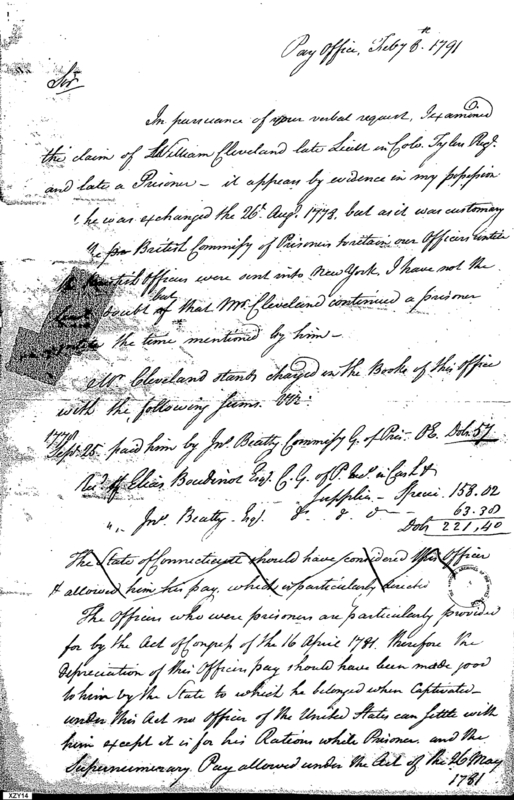 Pay Office, Feby 8th 1791
Sir
In pursuance of your verbal request, I examined
the claim of William Cleveland late Lieut in Colo. Tylers Regt.
and late a Prisoner — it appears by evidence in my possession
he was exchanged the 26th Augt. 1778. but as it was customary
British Commissy of Prisoners to retain our Officers until
British Officers were sent into New York, I have not the
least doubt but that Mr. Cleveland continued a prisoner
until the time mentioned by him —
Mr Cleveland stands charged in the Books of this Office
with the following sums. Viz:
1778
Sept. 25. paid him by Jno. Beatty Commissy G. of Pris. Dolrs. 57
of Elias Boudinot Esqr. C. G. of P. in Cash &
Supplies — Specie. 158.02
"  Jno. Beatty Esqr. do do do — 63.38
Dolrs 221,40
The State of Connecticut should have considered this Officer
& allowed him his pay, which is particularly directed
The Officers who were prisoners are particularly provided
for by the Act of Congress of the 16 April 1781. therefore the
Depreciation of this Officers pay should have been made good
to him by the State to which he belonged when Captivated —
under this Act no Officer of the United States can settle with
him except it is for his Rations while Prisoner and the
Supernumerary Pay allowed under the Act of the 26 May
1781
XZY14